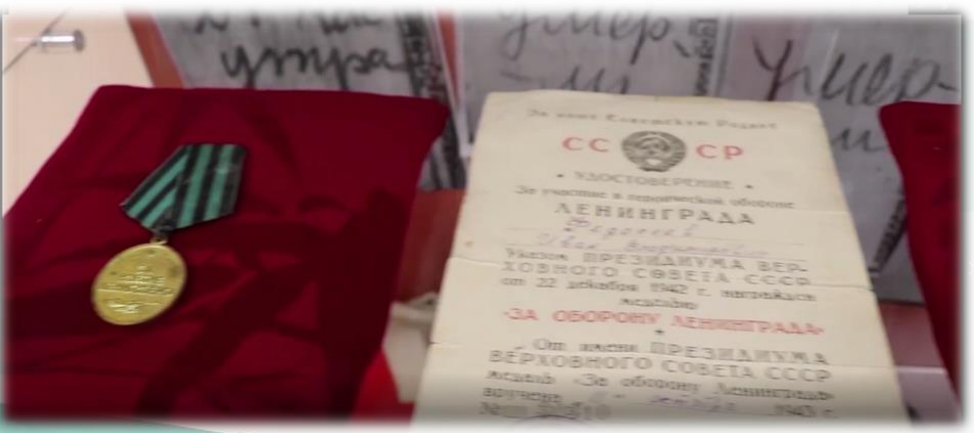 утра
умер-
ли
Умер-
ли
За нашу Советскую Родину
СССР
УДОСТОВЕРЕНИЕ
За участие в героической обороне
ЛЕНИНГРАДА
Иван
Указом ПРЕЗИДИУМА ВЕР-
ХОВНОГО СОВЕТА СССР
от 22 декабря 1942 г. награжден
медалью
«ЗА ОБОРОНУ ЛЕНИНГРАДА»
От имени ПРЕЗИДИУМА
ВЕРХОВНОГО СОВЕТА СССР
медаль «За оборону Ленинграда»
вручена 1943 г.
№